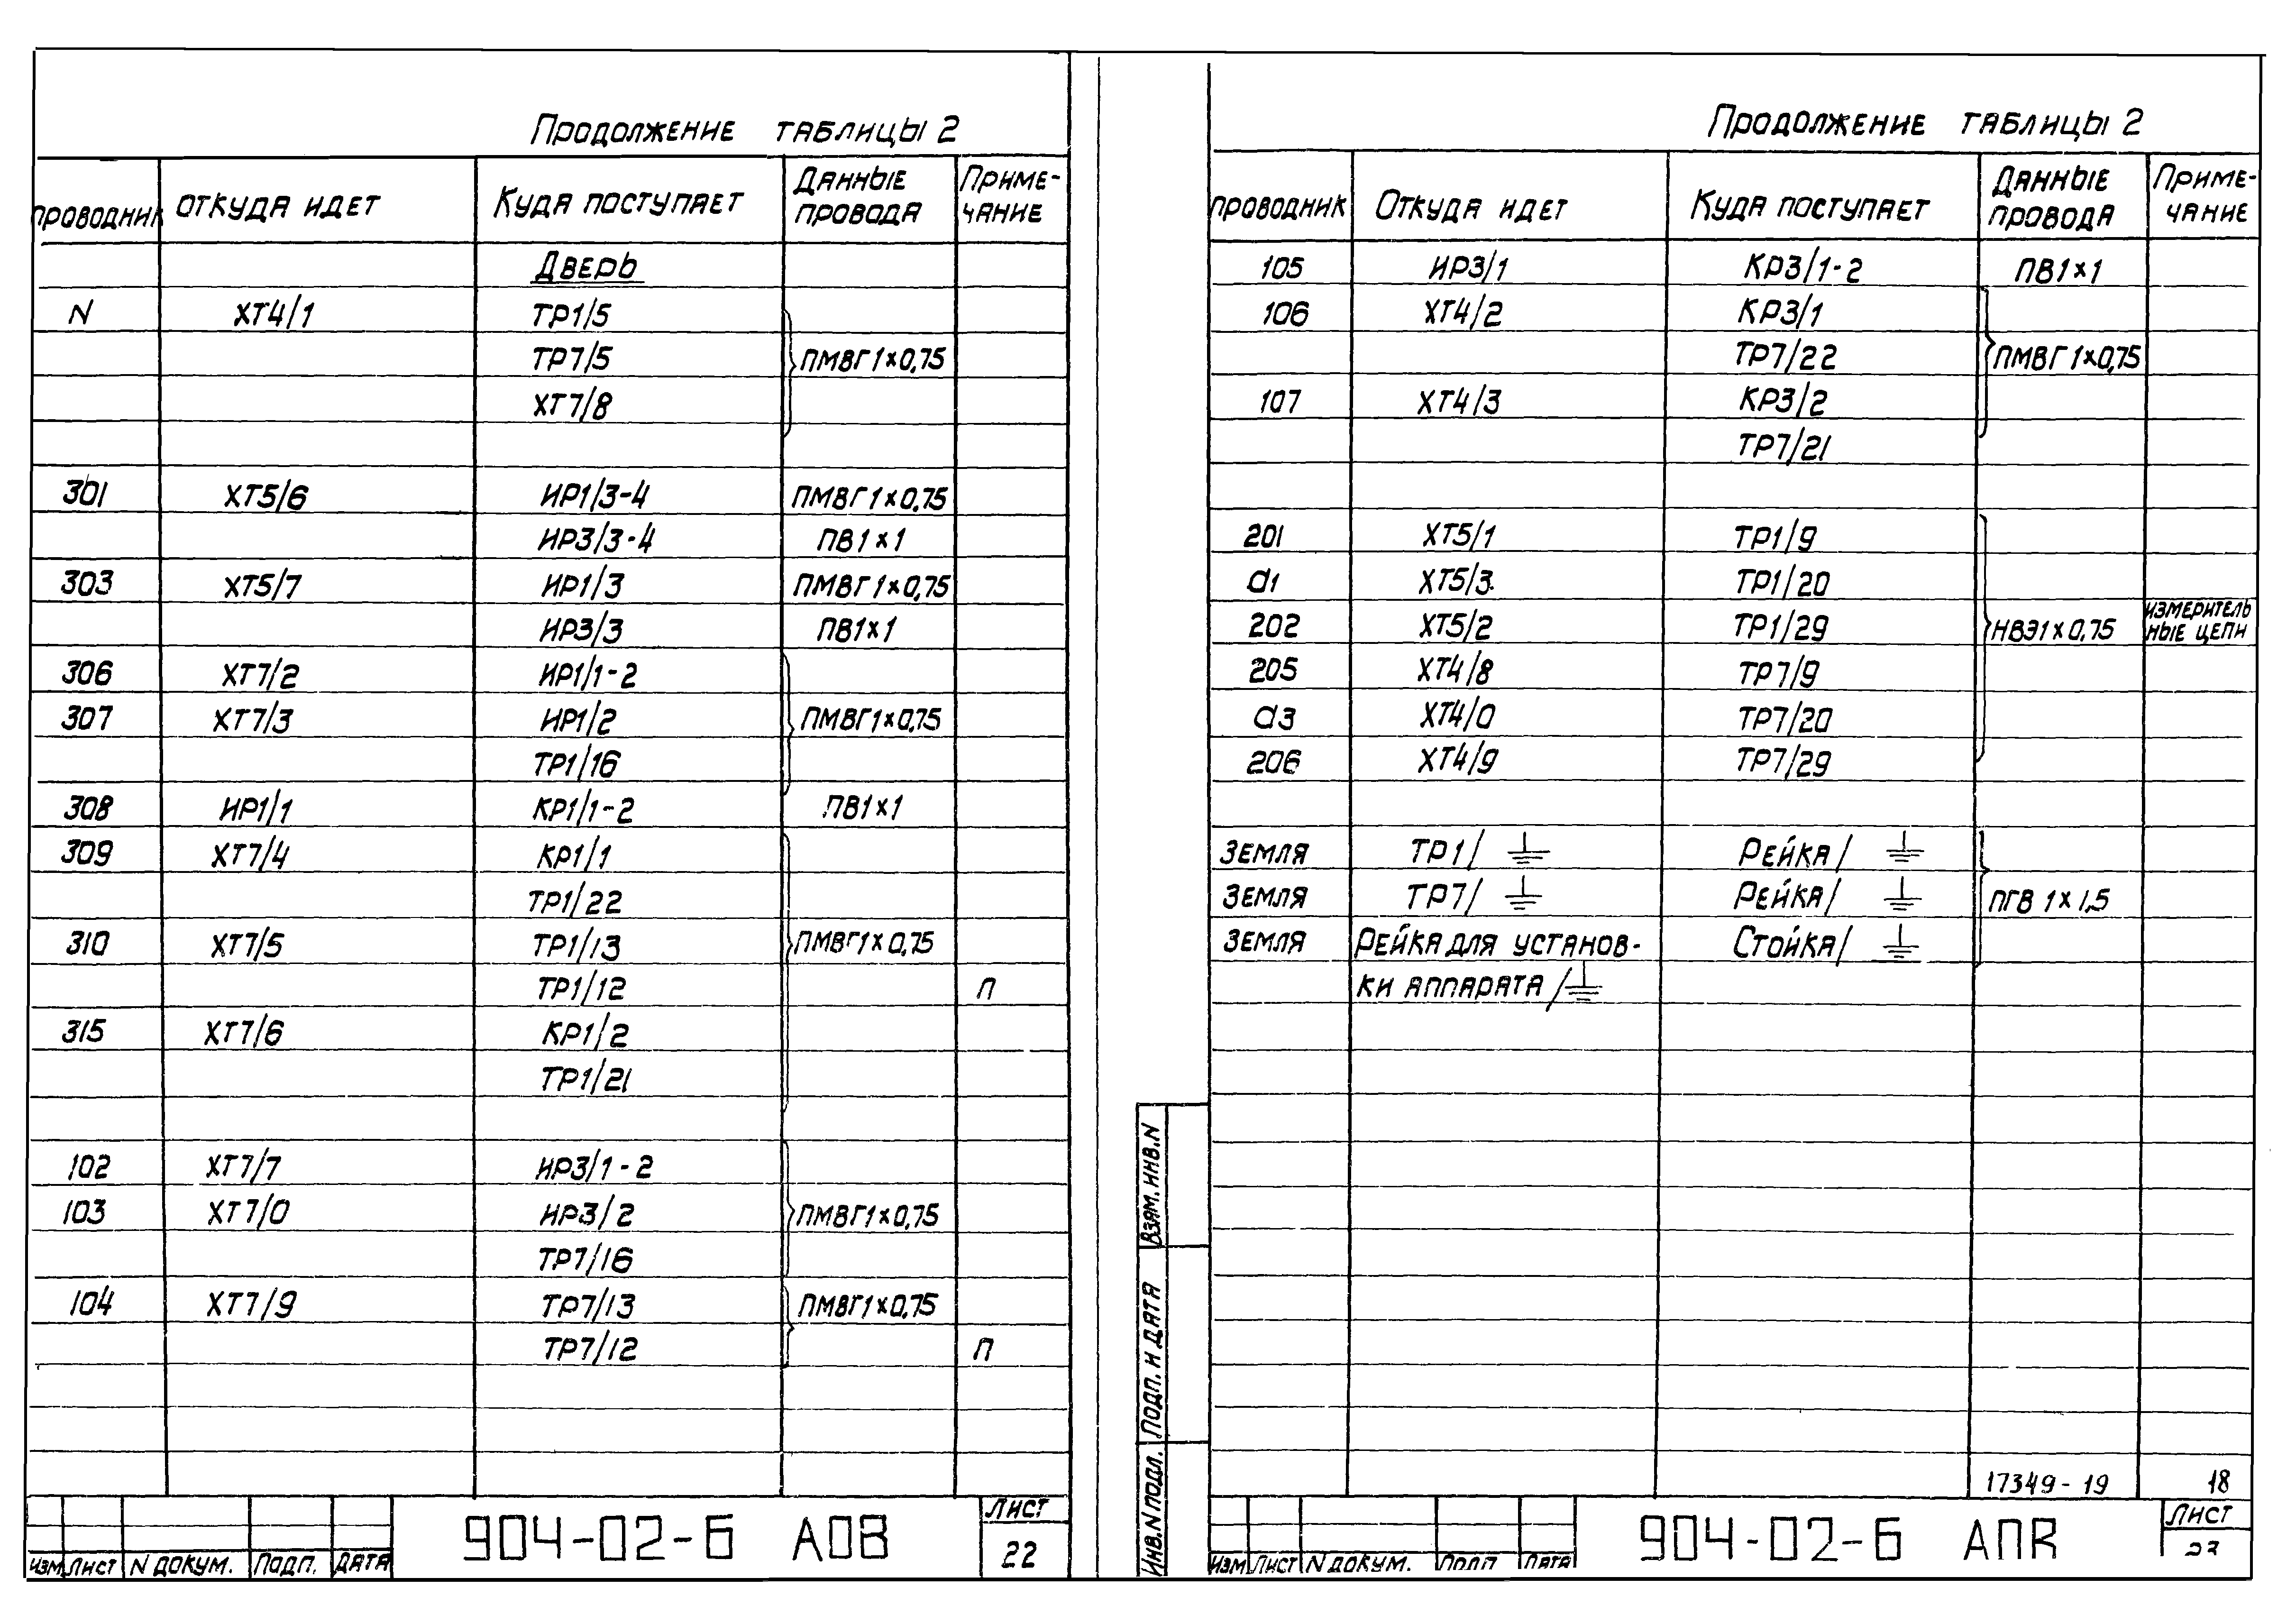 Продолжение таблицы 2
Проводник Откуда идет Куда поступает Данные провода Примечание
Дверь
N ХТ4/1 ТР1/5
ТР7/5 ПМВГ 1×0,75
ХТ7/8
301 ХТ5/6 ИР1/3-4 ПМВГ 1×0,75
ИР3/3-4 ПВ1×1
303 ХТ5/7 ИР1/3 ПМВГ 1×0,75
ИР3/3 ПВ1×1
306 ХТ7/2 ИР1/1-2
307 ХТ7/3 ИР1/2 ПМВГ1×0,75
ТР1/16
308 ИР1/1 КР1/1-2 ПВ1×1
309 ХТ7/4 КР1/1
ТР1/22
310 ХТ7/5 ТР1/13 ПМВГ1×0,75
ТР1/12 П
315 ХТ7/6 КР1/2
ТР1/21
102 ХТ7/7 ИР3/1-2
103 ХТ7/0 ИР3/2 ПМВГ1×0,75
ТР7/16
104 ХТ7/9 ТР7/13 ПМВГ1×0,75
ТР7/12 П
Изм Лист N докум. Подп. Дата
904-02-6 АОВ
Лист
22
Продолжение таблицы 2
Проводник Откуда идет Куда поступает Данные провода Примечание
105 ИР3/1 КР3/1-2 ПВ1×1
106 ХТ4/2 КР3/1
ТР7/22 ПМВГ 1×0,75
107 ХТ4/3 КР3/2
ТР7/21
201 ХТ5/1 ТР1/9
а1 ХТ5/3 ТР1/20
202 ХТ5/2 ТР1/29 НВЭ1×0,75 Измерительные цепи
205 ХТ4/8 ТР7/9
а3 ХТ4/0 ТР7/20
206 ХТ4/9 ТР7/29
Земля ТР1/⏚ Рейка/⏚
Земля ТР7/⏚ Рейка/⏚ ПГВ 1×1,5
Земля Рейка для установ- Стойка/⏚
ки аппарата/⏚
Взам. инв. N
Подп. и дата
Инв. N подл.
17349-19 18
Изм Лист N докум. Подп Дата
904-02-6 АПR
Лист